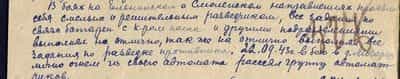 В боях на Ельнинском и Смоленском направлениях проявил
себя смелым и решительным разведчиком, все задания по
связи батареи с стрелковыми и другими подразделениями
выполнял на отлично, так же на отлично выполнял все
задания по разведке противника. 22.09.43г. в бою
огнем из своего автомата рассеял группу автомат
чиков.